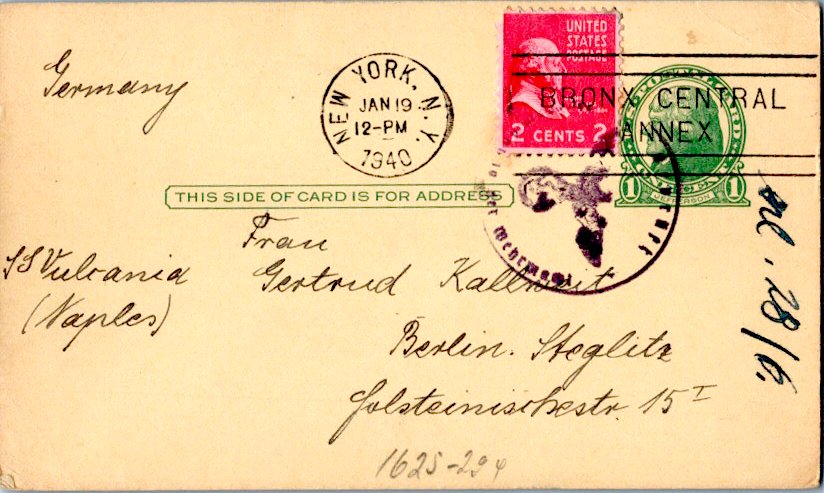 Germany
NEW YORK, N.Y.
JAN 19
12-PM
1940
UNITED
STATES
POSTAGE
2 CENTS 2
BRONX CENTRAL
ANNEX
1 JEFFERSON 1
THIS SIDE OF CARD IS FOR ADDRESS
SS Vulcania
(Naples)
Frau
Gertrud Kallweit
Berlin. Steglitz
Holsteinischestr. 15 I
28/6.
1625-224